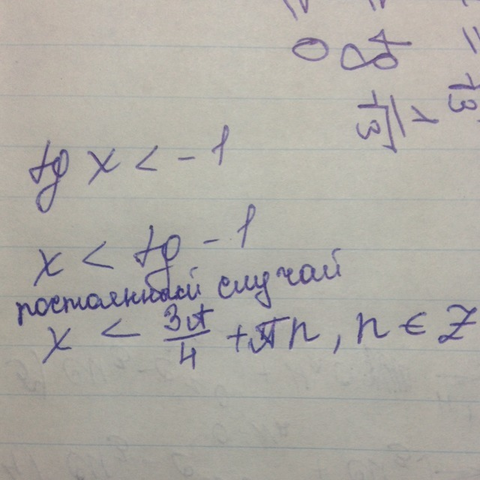 tg x < -1
x < tg -1
постоянный случай
x < 3π/4 + πn, n ∈ Z
tg 0
1/√3